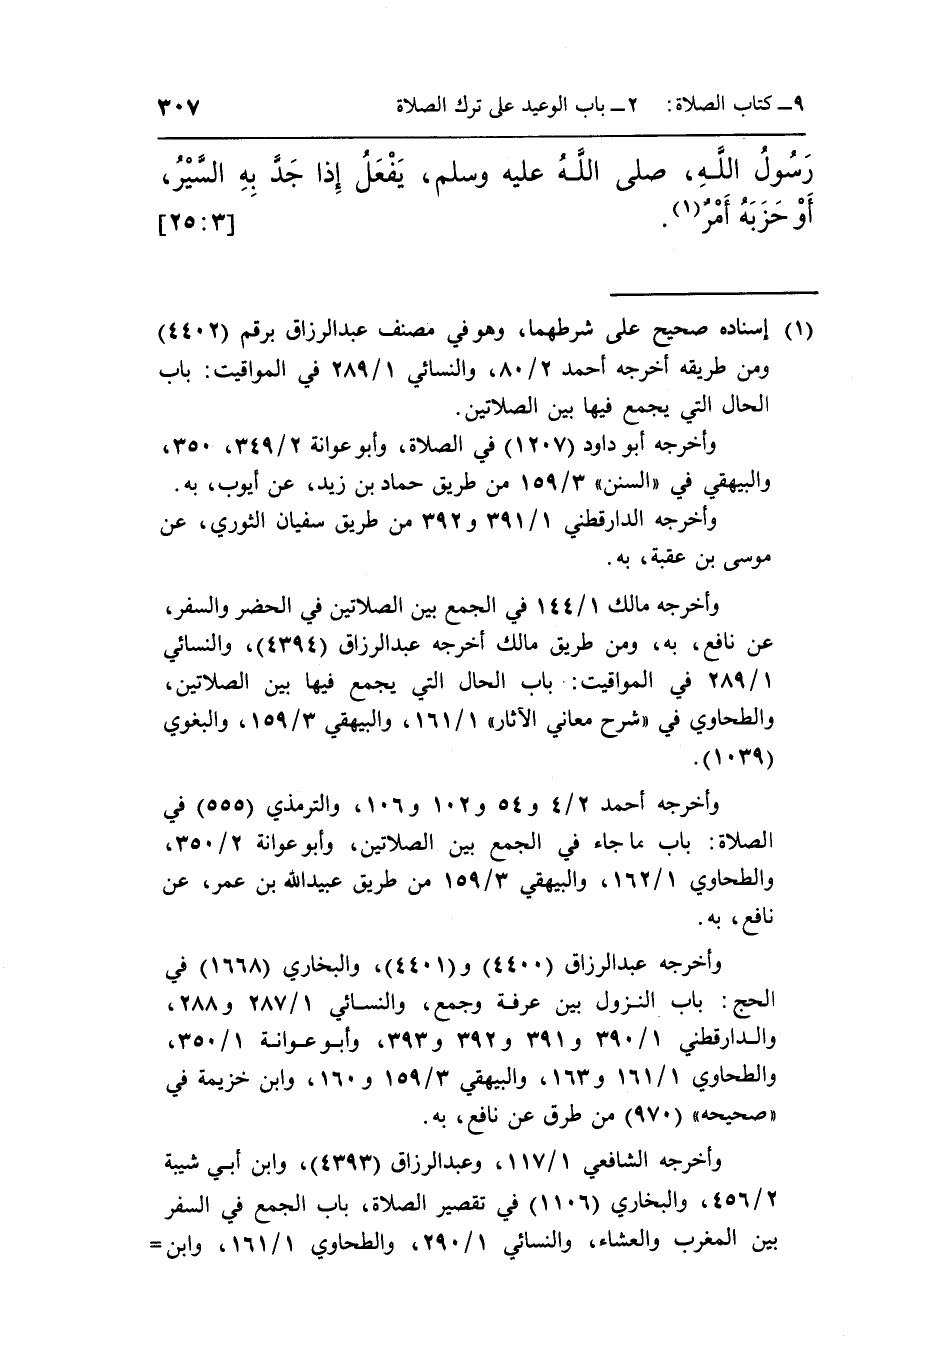 ٩ـ كتاب الصلاة: ٢ـ باب الوعيد على ترك الصلاة ٣٠٧
رَسُولُ اللَّهِ، صلى اللَّهُ عليه وسلم، يَفْعَلُ إِذا جَدَّ بِهِ السَّيْرُ،
أَوْ حَزَبَهُ أَمْرٌ(١). [٣:٢٥]
(١) إسناده صحيح على شرطهما، وهو في مصنف عبدالرزاق برقم (٤٤٠٢)
ومن طريقه أخرجه أحمد ٨٠/٢، والنسائي ٢٨٩/١ في المواقيت: باب
الحال التي يجمع فيها بين الصلاتين.
وأخرجه أبو داود (١٢٠٧) في الصلاة، وأبو عوانة ٣٤٩/٢، ٣٥٠،
والبيهقي في «السنن» ١٥٩/٣ من طريق حماد بن زيد، عن أيوب، به.
وأخرجه الدارقطني ٣٩١/١ و٣٩٢ من طريق سفيان الثوري، عن
موسى بن عقبة، به.
وأخرجه مالك ١٤٤/١ في الجمع بين الصلاتين في الحضر والسفر،
عن نافع، به، ومن طريق مالك أخرجه عبدالرزاق (٤٣٩٤)، والنسائي
٢٨٩/١ في المواقيت: باب الحال التي يجمع فيها بين الصلاتين،
والطحاوي في «شرح معاني الآثار» ١٦١/١، والبيهقي ١٥٩/٣، والبغوي
(١٠٣٩).
وأخرجه أحمد ٤/٢ و٥٤ و١٠٢ و١٠٦، والترمذي (٥٥٥) في
الصلاة: باب ما جاء في الجمع بين الصلاتين، وأبو عوانة ٣٥٠/٢،
والطحاوي ١٦٢/١، والبيهقي ١٥٩/٣ من طريق عبيدالله بن عمر، عن
نافع، به.
وأخرجه عبدالرزاق (٤٤٠٠) و(٤٤٠١)، والبخاري (١٦٦٨) في
الحج: باب النزول بين عرفة وجمع، والنسائي ٢٨٧/١ و٢٨٨،
والدارقطني ٣٩٠/١ و٣٩١ و٣٩٢ و٣٩٣، وأبو عوانة ٣٥٠/١،
والطحاوي ١٦١/١ و١٦٣، والبيهقي ١٥٩/٣ و١٦٠، وابن خزيمة في
«صحيحه» (٩٧٠) من طرق عن نافع، به.
وأخرجه الشافعي ١١٧/١، وعبدالرزاق (٤٣٩٣)، وابن أبي شيبة
٤٥٦/٢، والبخاري (١١٠٦) في تقصير الصلاة، باب الجمع في السفر
بين المغرب والعشاء، والنسائي ٢٩٠/١، والطحاوي ١٦١/١، وابن =